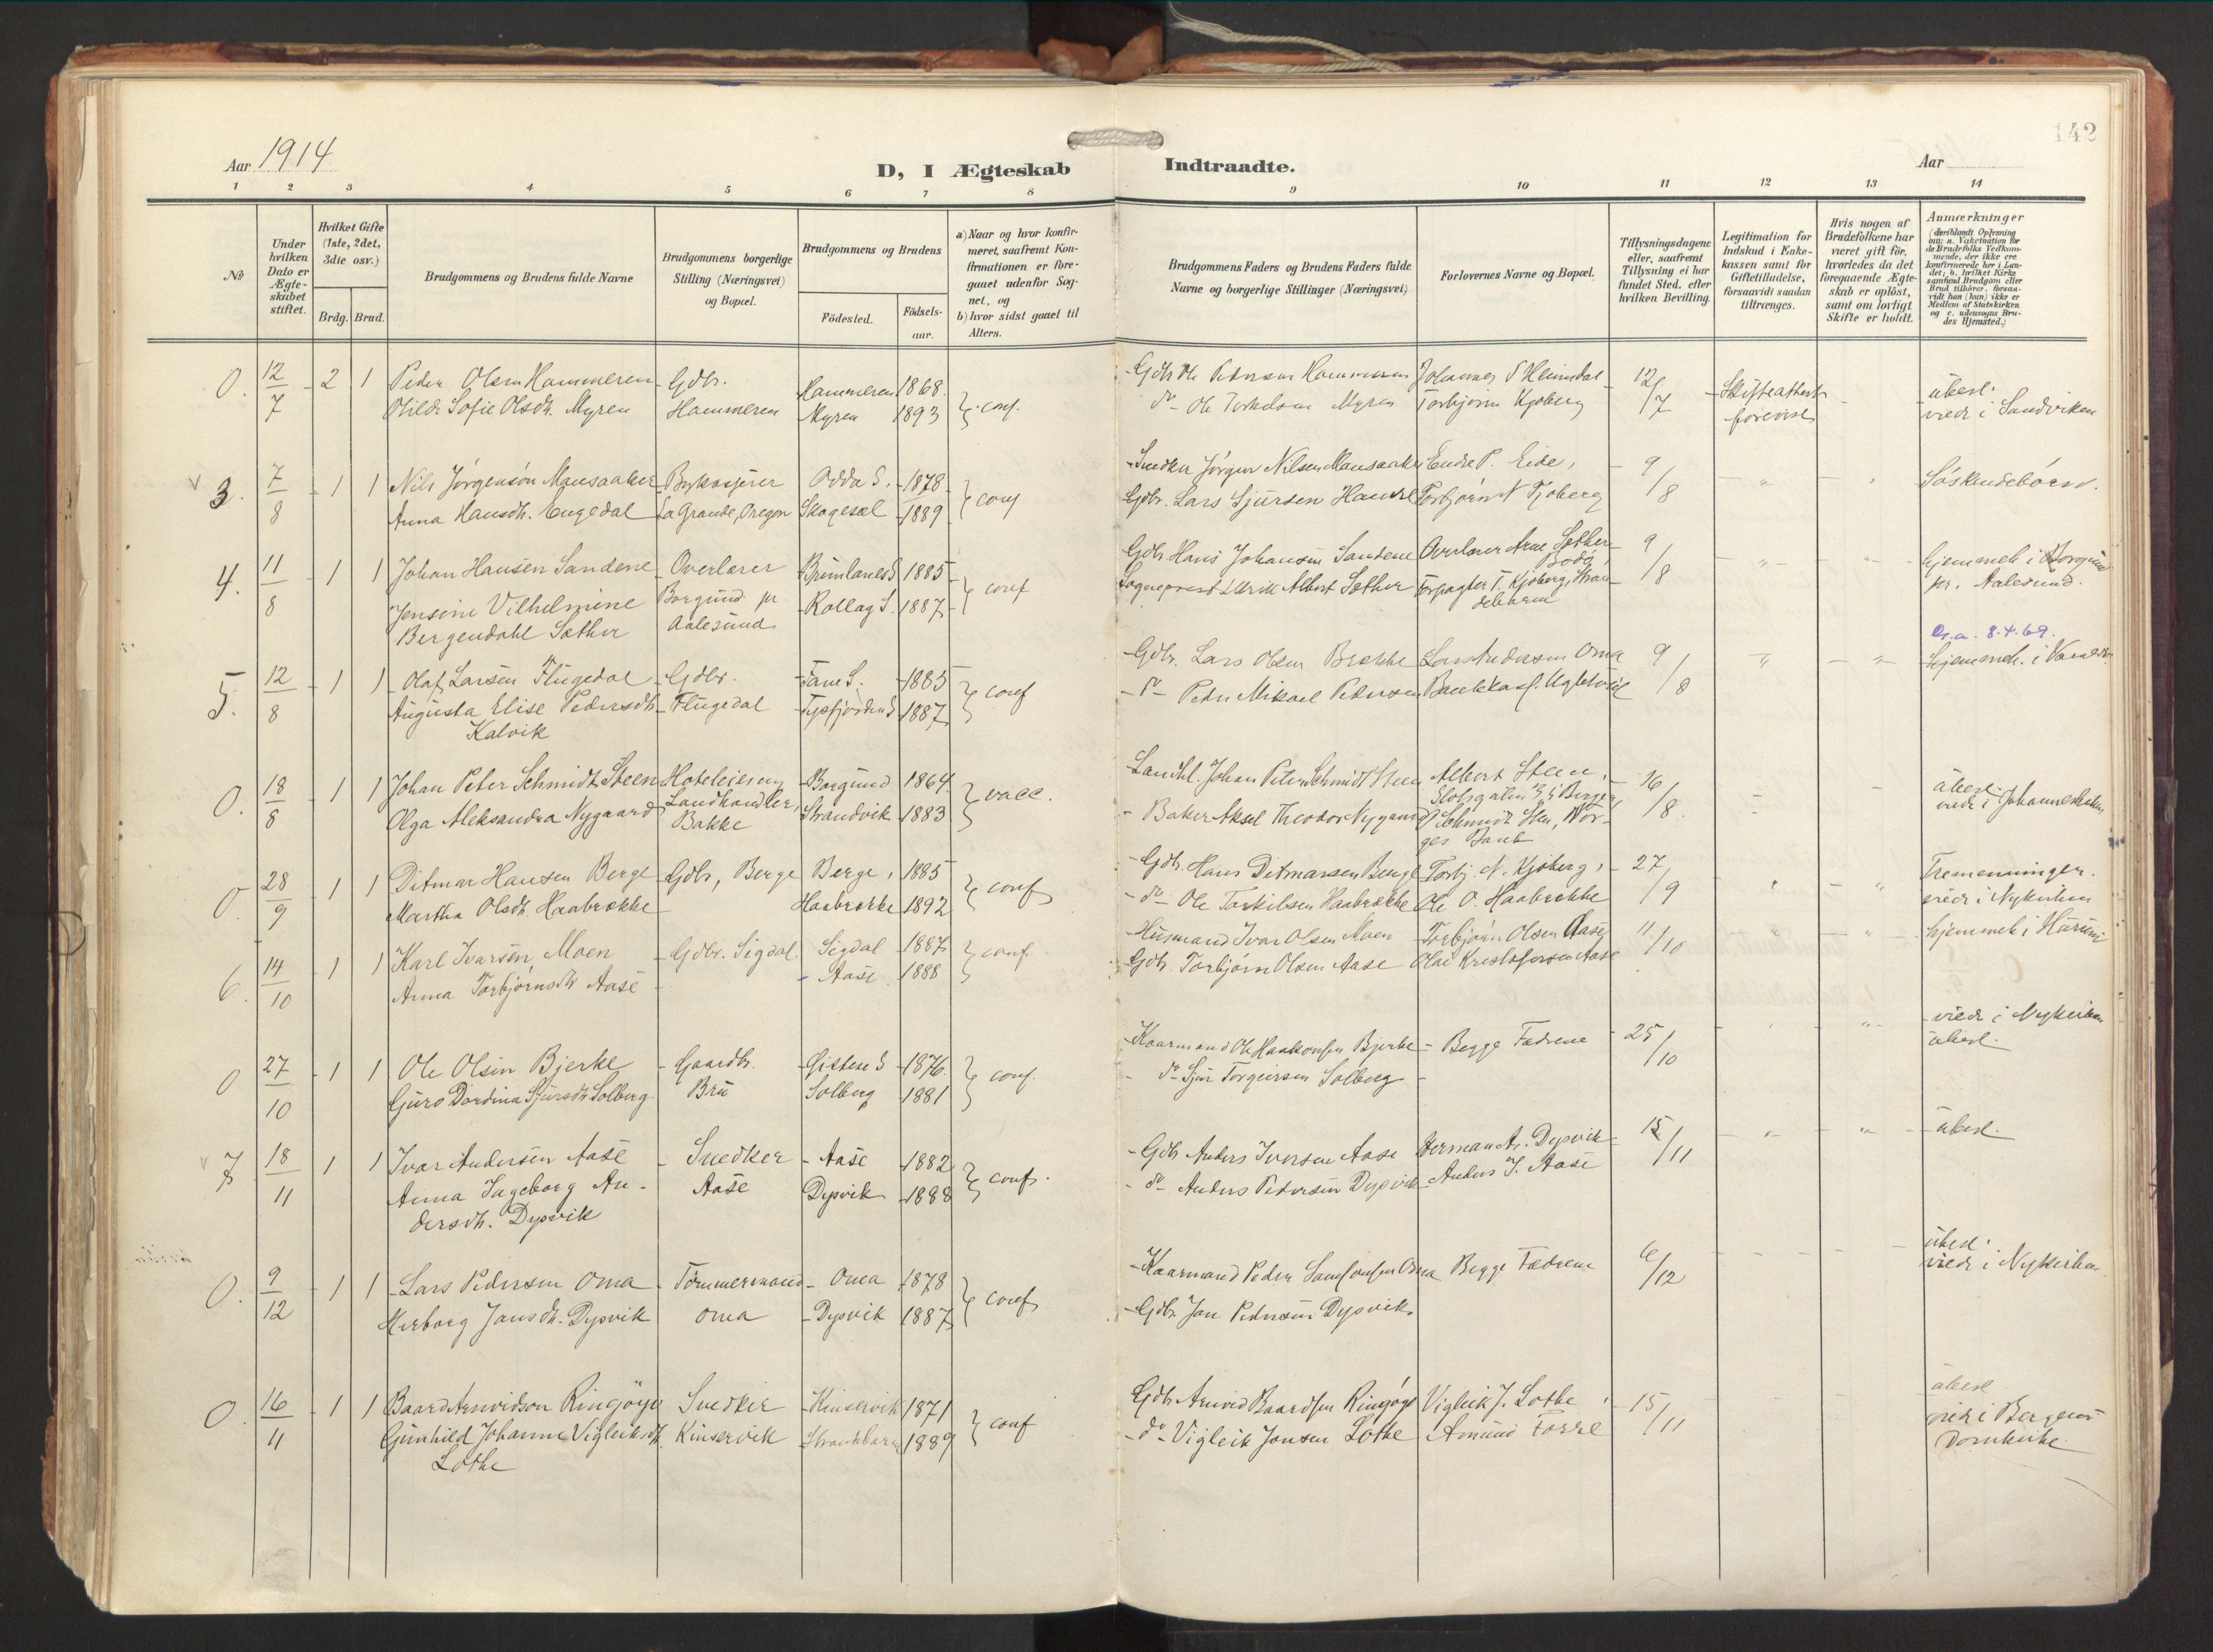 142
Aar 1914
D, I Ægteskab
Indtraadte.
Aar
1 2 3 4 5 6 7 8 9 10 11 12 13 14
No
Under hvilken Dato er Ægteskabet stiftet.
Hvilket Gifte (1ste, 2det, 3die osv.)
Brdg. Brud.
Brudgommens og Brudens fulde Navne
Brudgommens borgerlige Stilling (Næringsvei) og Bopæl.
Brudgommens og Brudens
Fødested.
Fødselsaar.
a) Naar og hvor konfirmeret, saafremt Konfirmationen er foregaaet udenfor Sognet, og
b) hvor sidst gaaet til Alters.
Brudgommens Faders og Brudens Faders fulde Navne og borgerlige Stillinger (Næringsvei)
Forlovernes Navne og Bopæl.
Tillysningsdagene eller, saafremt Tillysning ei har fundet Sted, efter hvilken Bevilling.
Legitimation for Indskud i Enkekassen samt for Giftetilladelse, forsaavidt saadan tiltrænges.
Hvis nogen af Brudefolkene har været gift før, hvorledes da det foregaaende Ægteskab er opløst, samt om lovligt Skifte er holdt.
Anmærkninger (deriblandt Oplysning om: a. Vakcination for de Brudefolks Vedkommende, der ikke ere konfirmerede her i Landet; b. hvilket Kirkesamfund Brudgom eller Brud tilhører, forsaavidt han (hun) ikke er Medlem af Statskirken og c. udensogns Brudes Hjemsted.)
0. 12/7 2 1 Peder Olsen Hammeren Gdbr. Hammeren 1868
Olilde Sofie Olsdt. Myren Hammeren Myren 1893 conf.
Gdbr Ole Pedersen Hammeren Johannes S Heimdal 12/7 Skifteattest übesl.
do Ole Torkelsen Myren Torbjørn Kjøberg forevist viede i Sandviken
3. 7/8 1 1 Nils Jørgensøn Mansaaker Odda S. 1878
Anna Hansdt. Engedal La Grande, Oregon 1889 conf
Snedker Jørgen Nilsen Mansaaker Endre P. Eide, 9/8 Søskendebørn.
Gdbr. Lars Sjursen
4. 11/8 1 1 Johan Hansen Sandene Overlærer Brunlanes S 1885
Jensine Vilhelmine Borgund pr. Rollag S. 1887 conf
Bergendahl Sæther Aalesund
Gdbr Hans Johansen Sandene Overlærer Arne Sæther Bodø, 9/8 hjemmeh i Borgund
Sogneprest Ulrik Albert Sæther Forpagter T. Kjøberg, Strandebarm pr. Aalesund.
5. 12/8 1 1 Olaf Larsen Flugedal Gdbr. Fane S. 1885
Augusta Elise Pedersdt. Flugedal Tysfjorden S 1887 conf
Kalvik
Gdbr. Lars Olsen Brekke Lars Andersen Oma 9/8 8.4.69.
do Peder Mikael Pedersen hjemmeh. i
0. 18/8 1 1 Johan Peter Schmidt Steen Hoteleier og Borgund 1864
Olga Aleksandra Nygaard Landhandler, Strandvik 1883 vacc.
Bakke
Landhl. Johan Peter Schmidt Steen Albert Steen, 16/8 übesl.
Slotsgaten i Bergen viede i Johanneskirken
Baker Aksel Theodor Nygaard P Schmidt Steen, Norges Bank
0. 28/9 1 1 Ditmar Hansen Berge Gdbr, Berge Berge, 1885
Martha Olsdt. Haabrekke Haabrekke 1892 conf
Gdbr. Hans Ditmarsen Berge Torbj. N. Kjøberg, 27/9 Tremenninger.
do Ole Torkilsen Haabrekke Ole O. Haabrekke viede i Nykirken
6. 14/10 1 1 Karl Ivarsen Moen Gdbr. Sigdal. Sigdal 1887
Anna Torbjørnsdt Aase Aase 1888 conf
Husmand Ivar Olsen Moen Torbjørn Olsen Aase 11/10
Gdbr. Torbjørn Olsen Aase Olai Kristofersen Aase
0 27/10 1 1 Ole Olsen Bjerke Gaardbr. 1876
Guro Dordina Sjursdt. Solberg Bru Solberg 1881 conf.
Kaarmand Ole Haakonsen Bjerke Begge Fædrene 25/10 viede i Nykirken
do Sjur Torgeirsen Solberg übesl.
7 18/11 1 1 Ivar Andersen Aase Snedker Aase 1882
Anna Ingeborg An- Aase Dysvik 1888 conf.
dersdt. Dysvik
Gdbr Anders Iversen Aase Herman A. Dysvik 15/11 übesl.
do Anders Pedersen Dysvik Anders I. Aase
0. 9/12 1 1 Lars Pedersen Oma Tømmermand Oma 1878
Herborg Jansdt. Dysvik Oma Dysvik 1887 conf
Kaarmand Peder Samsonsen Oma Begge Fædrene 6/12 übesl.
Gdbr. Jan Pedersen Dysvik viede i Nykirken
0. 16/11 1 1 Baard Arnvidson Ringøye Snedker Kinservik 1871
Gunhild Johanne Vigleiksdt. Kinservik Strandebarm 1889 conf
Lothe
Gdbr. Arnvid Baardsen Ringøye Vigleik J. Lothe 15/11 übesl
do Vigleik Jonsen Lothe Amund Torre viet i Bergens Domkirke